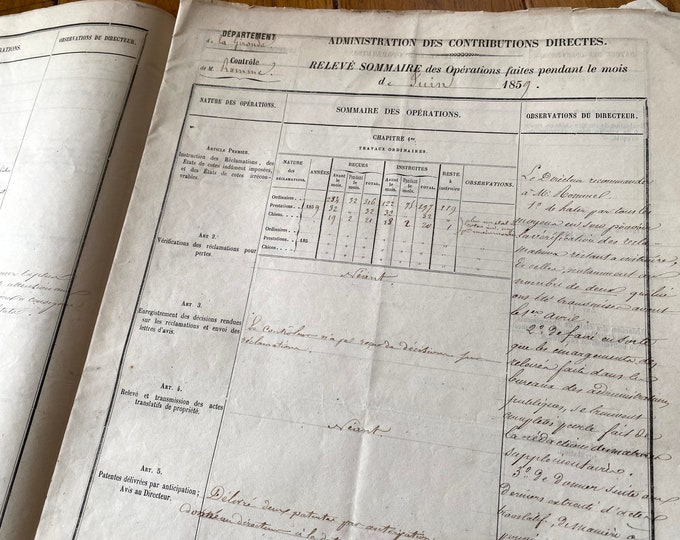 OBSERVATIONS DU DIRECTEUR.
DÉPARTEMENT
de la Gironde
Contrôle
de M. Rommel
ADMINISTRATION DES CONTRIBUTIONS DIRECTES.
RELEVÉ SOMMAIRE des Opérations faites pendant le mois
de Juin 1859.
NATURE DES OPÉRATIONS.
SOMMAIRE DES OPÉRATIONS.
OBSERVATIONS DU DIRECTEUR.
ARTICLE PREMIER.
Instruction des Réclamations, des
États de cotes indûment imposées,
et des États de cotes irrécou-
vrables.
CHAPITRE 1er
TRAVAUX ORDINAIRES.
NATURE des RÉCLAMATIONS. ANNÉES RECUES INSTRUITES RESTE à instruire OBSERVATIONS.
Avant le mois. Pendant le mois. TOTAL. Avant le mois. Pendant le mois. TOTAL.
Ordinaires . . . 284 32 316 122 75 197 119
Prestations . . . 1859 32 " 32 32 " 32 "
Chiens . . . 19 2 21 18 2 20 1
Ordinaires . . .
Prestations . . . 185
Chiens . . .
ART. 2.
Vérifications des réclamations pour
pertes.
Néant.
ART. 3.
Enregistrement des décisions rendues
sur les réclamations et envoi des
lettres d'avis.
Le contrôleur n'a pas reçu de décisions sur
réclamations.
ART. 4.
Relevé et transmission des actes
translatifs de propriété.
Néant.
ART. 5.
Patentes délivrées par anticipation;
Avis au Directeur.
Délivré deux patentes par anticipation
Le Directeur recommande
à Mr Rommel
1º de hâter par tous les
moyens en son pouvoir
la vérification des récla-
mations restant à instruire,
de celles, notamment, au
nombre de deux, qui lui
ont été transmises avant
le 1er avril.
2º De faire en sorte
que les émargements des
relevés faits dans les
bureaux des administrations
publiques, se trouvent
complets pour le fait de
la rédaction des matrices
supplémentaires.
3º De donner suite aux
derniers extraits d'actes
translatifs, de manière à